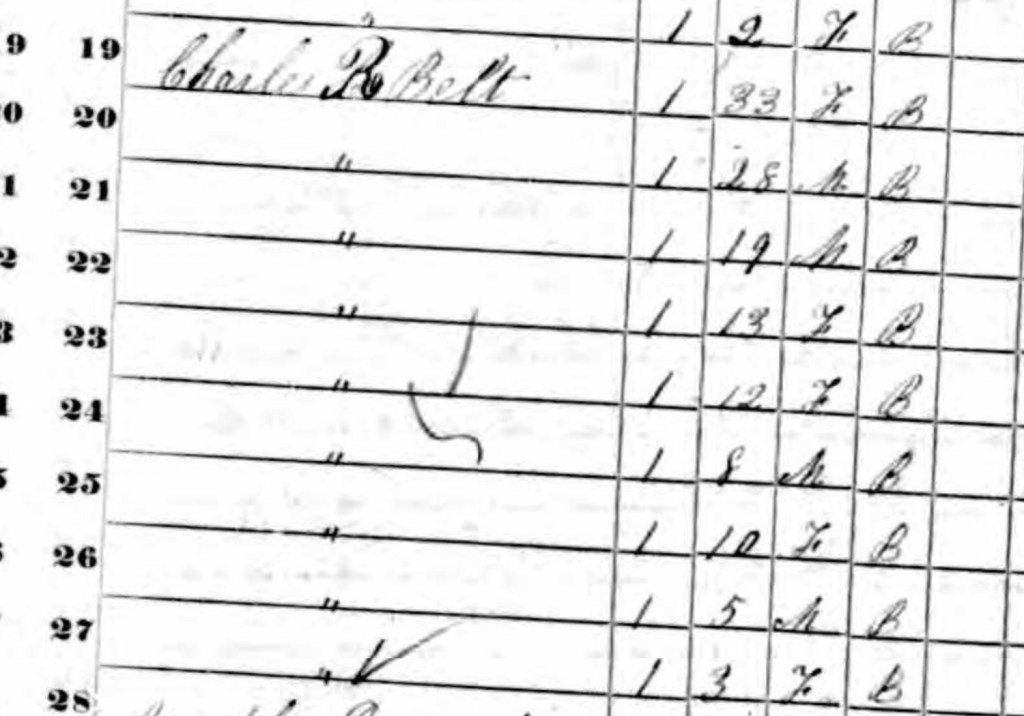 9 19 " 1 2 F B
0 20 Charles R Belt 1 33 F B
1 21 " 1 28 M B
2 22 " 1 19 M B
3 23 " 1 13 F B
4 24 " 1 12 F B
5 25 " 1 8 M B
6 26 " 1 10 F B
27 " 1 5 M B
28 " 1 3 F B